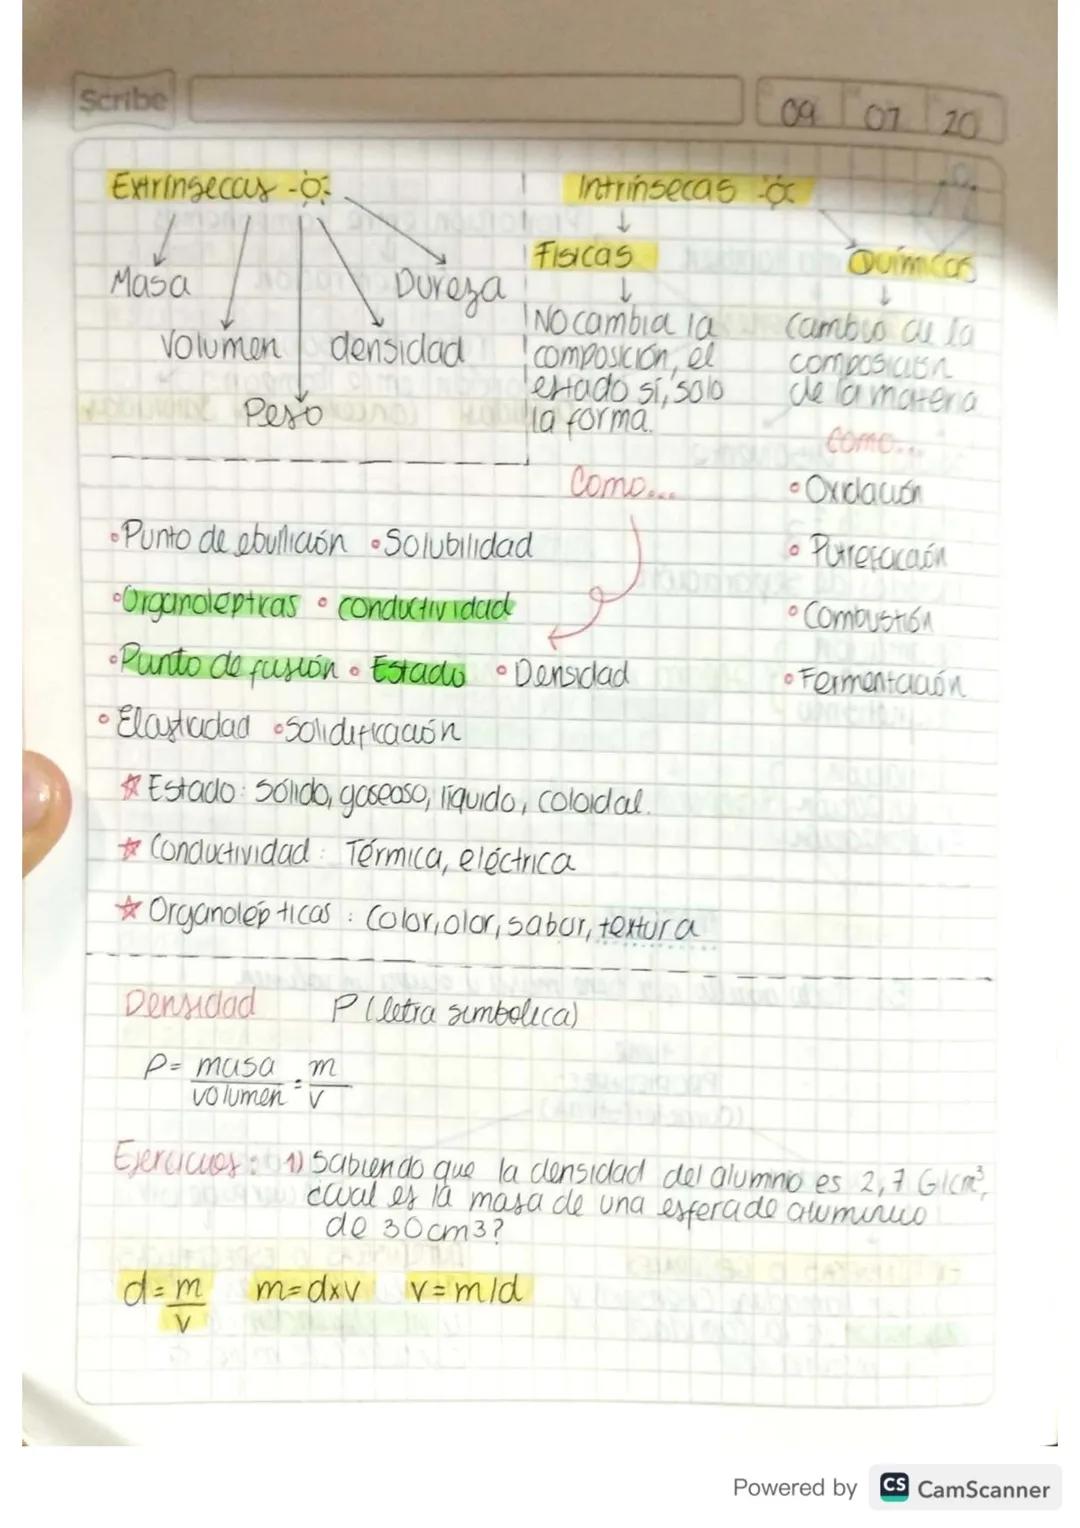 Scribe
09 07 20
Extrínsecas
Masa
Volumen
Peso
densidad
Dureza
Intrínsecas
Físicas
No cambia la
composición, el
estado sí, solo
la forma.
Como...
Químicas
Cambio de la
composición
de la matera
Como...
• Oxidación
• Putrefacción
• Combustión
• Fermentación
• Punto de ebullición • Solubilidad
• Organolépticas • conductividad
• Punto de fusión • Estado • Densidad
• Elasticidad • Solidificación
☆ Estado: Sólido, gaseoso, líquido, coloidal.
☆ Conductividad: Térmica, eléctrica
☆ Organolépticas: Color, olor, sabor, textura
Densidad P (letra simbolica)
P = masa/volumen = m/v
Ejercicios: 1) Sabiendo que la densidad del alumno es 2,7 G/cm³,
cual es la masa de una esfera de aluminio
de 30cm3?
d = m/v m=dxv v=m/d
Powered by CS CamScanner